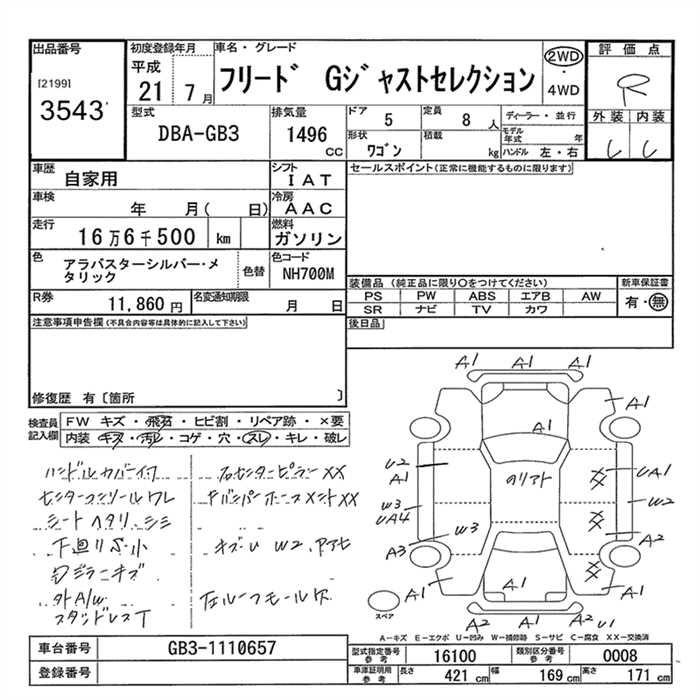 出品番号
[2199]
3543
初度登録年月
平成
21 7月
車名・グレード
フリード Gジャストセレクション
2WD
・
4WD
評価点
R
外装 内装
型式
DBA-GB3
排気量
1496
CC
ドア
5
定員
8人
形状
ワゴン
積載
kg
ディーラー・並行
モデル年式 年
ハンドル 左・右
車歴
自家用
シフト
IAT
車検
年 月( 日)
冷房
AAC
走行
16万6千500 km
燃料
ガソリン
色
アラバスターシルバー・メ
タリック
色替
色コード
NH700M
R券
11,860 円
名変通知期限
月 日
セールスポイント(正常に機能するものに限ります)
装備品 (純正品に限り○をつけてください)
PS PW ABS エアB AW
SR ナビ TV カワ
新車保証書
有・無
後日品
注意事項申告欄(不具合内容等は具体的に記入して下さい)
修復歴 有〔箇所 〕
検査員
記入欄
FW キズ・飛石・ヒビ割・リペア跡・×要
内装・キズ・汚レ・コゲ・穴・スレ・キレ・破レ
ハンドルカバー付
センターコンソールワレ
シートヘタリ・シミ
下廻りS・小
外A/w
スタッドレスT
右センターピラーXX
キズ・U W2
左ルーフモール欠
A1 A1 A1
A1
A1
U2
A1
W3
UA4
W3
A3
A1
UA1
W2
A2
A1
A1
A2 A2 U1
スペア
A－キズ E－エクボ U－凹み W－補修跡 S－サビ C－腐食 XX－交換済
車台番号
GB3-1110657
登録番号
型式指定番号
参考
16100
類別区分番号
参考
0008
車庫証明用
参考
長さ
421 cm
幅
169 cm
高さ
171 cm